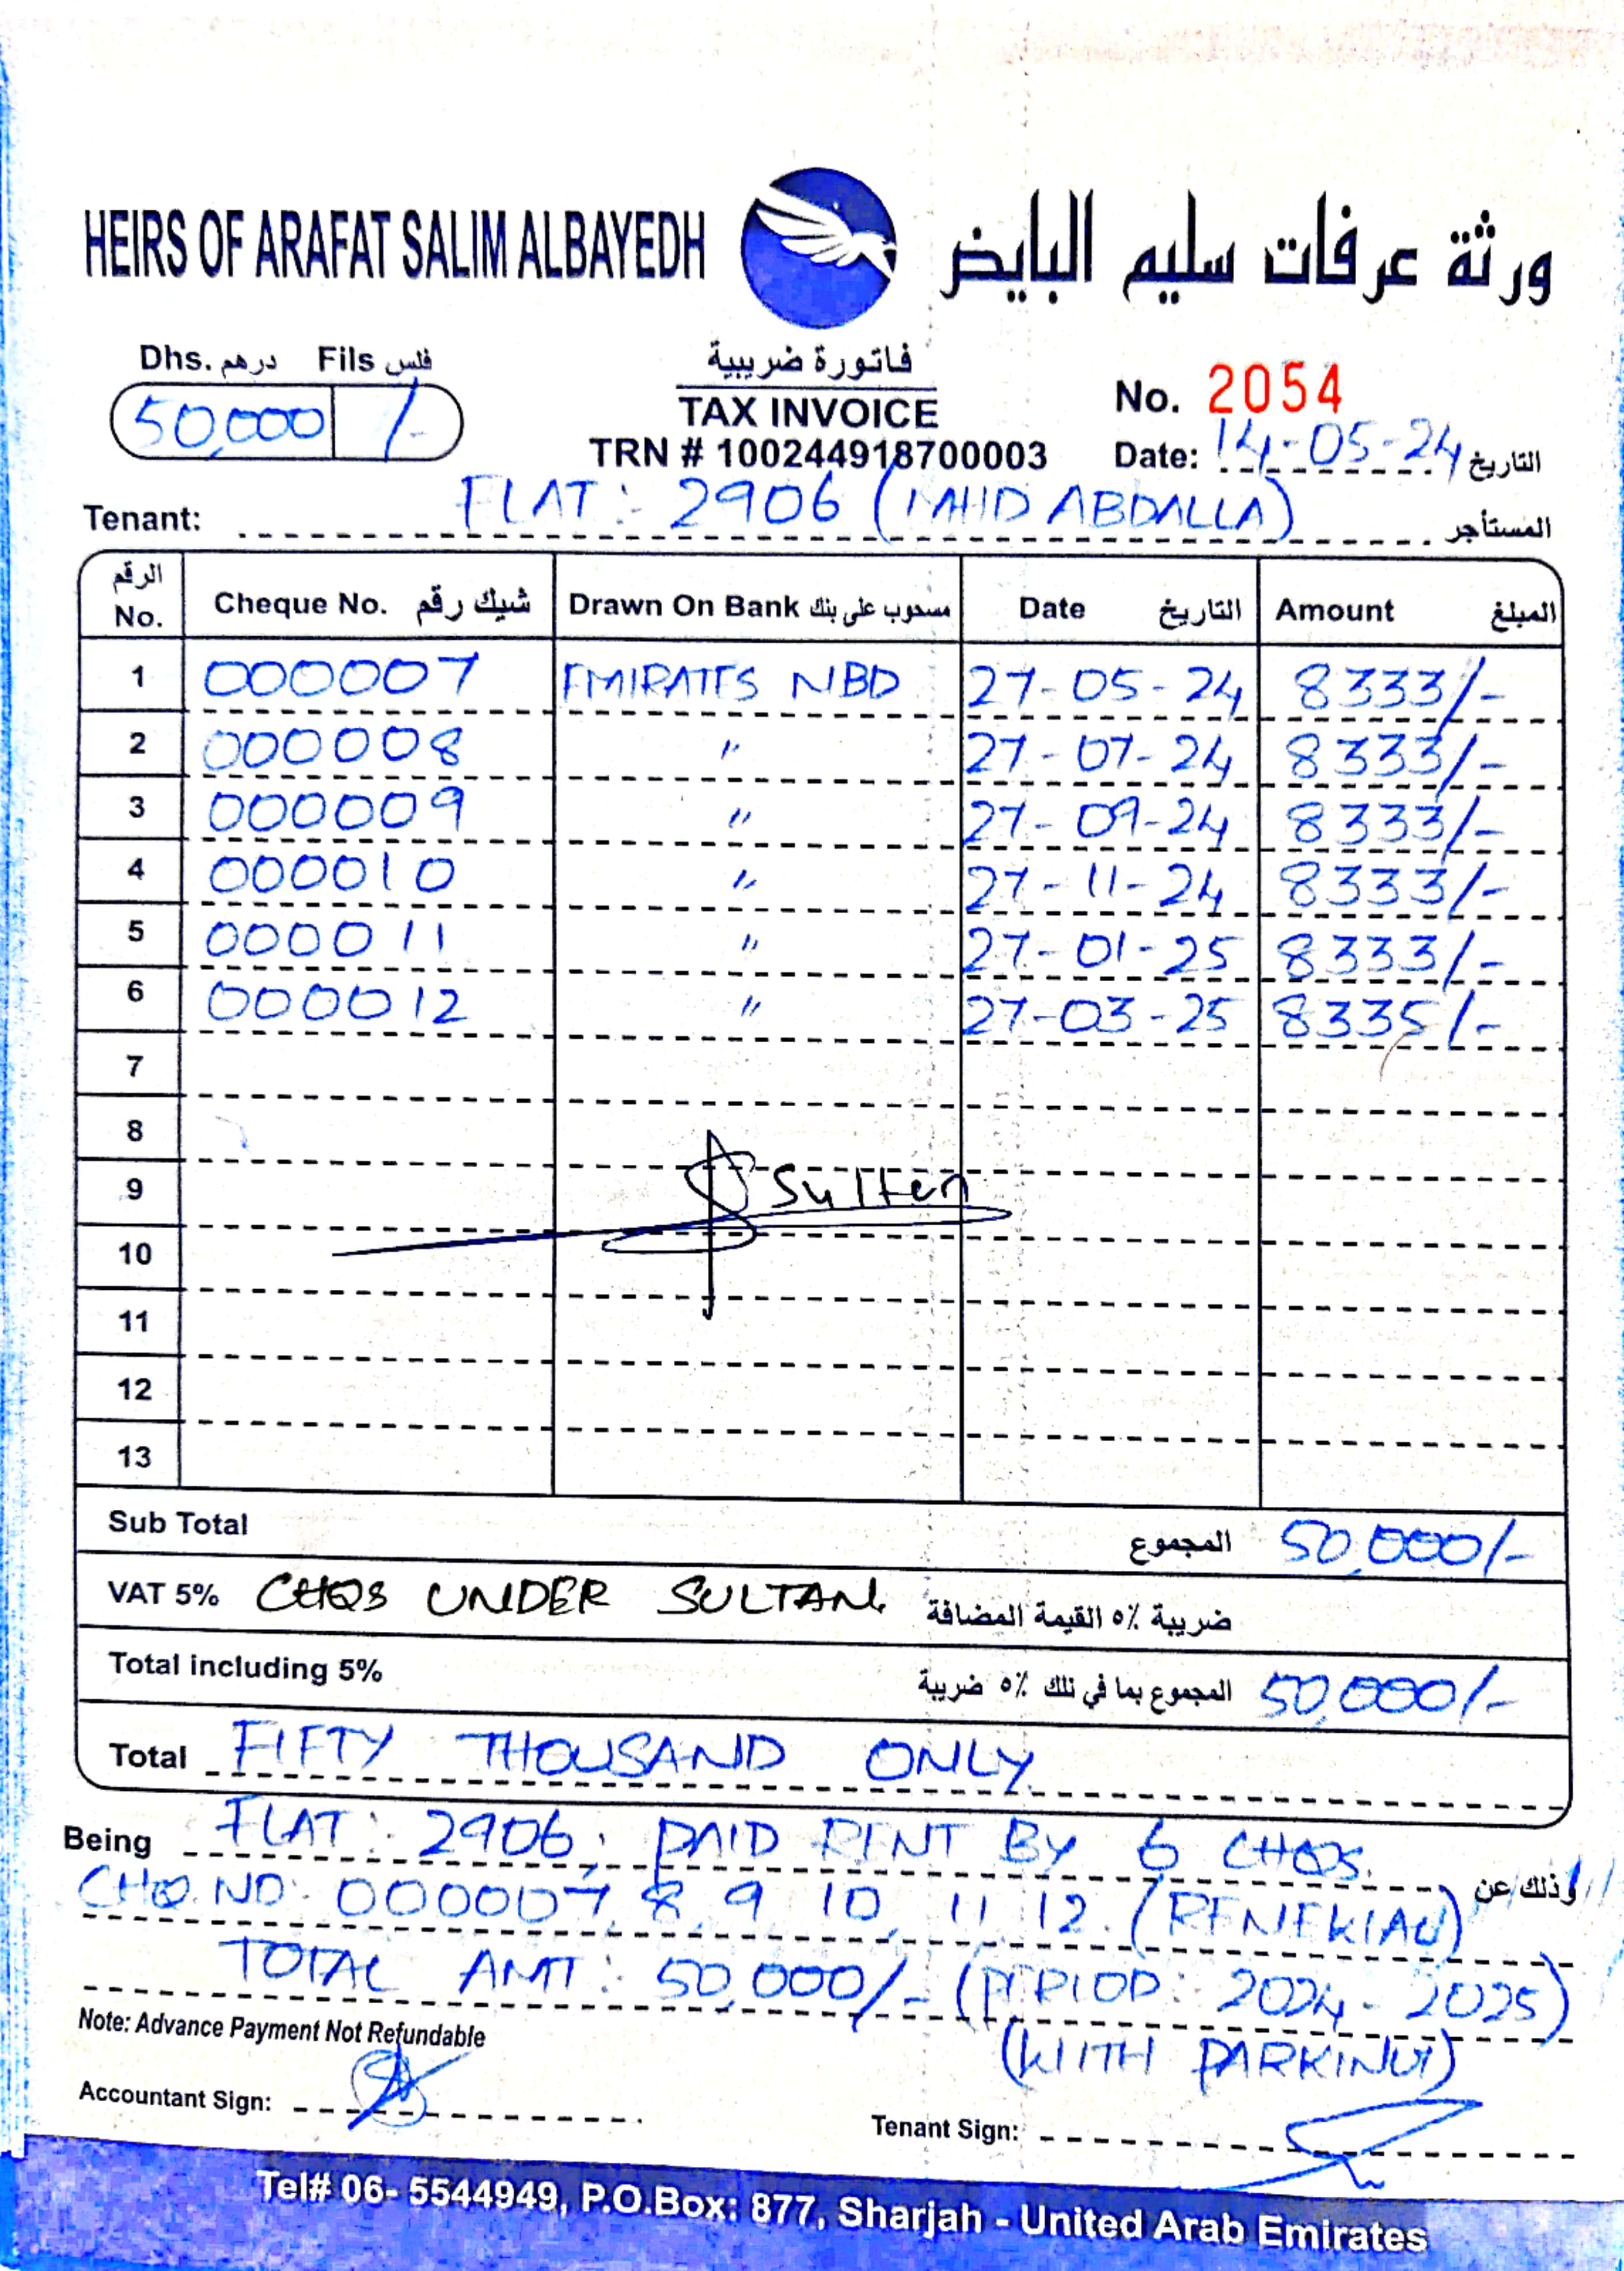 HEIRS OF ARAFAT SALIM ALBAYEDH ورثة عرفات سليم البايض
Dhs. درهم Fils فلس
50,000 /-
فاتورة ضريبية
TAX INVOICE
TRN # 100244918700003
No. 2054
Date: 14-05-24 التاريخ
Tenant: FLAT: 2906 ( ABDALLA) المستأجر
الرقم No. Cheque No. شيك رقم Drawn On Bank مسحوب على بنك Date التاريخ Amount المبلغ
1 000007 EMIRATES NBD 27-05-24 8333/-
2 000008 " 27-07-24 8333/-
3 000009 " 27-09-24 8333/-
4 000010 " 27-11-24 8333/-
5 000011 " 27-01-25 8333/-
6 000012 " 27-03-25 8335/-
7
8
9 Sulten
10
11
12
13
Sub Total المجموع 50,000/-
VAT 5% CHQS UNDER SULTAN ضريبة ٥٪ القيمة المضافة
Total including 5% المجموع بما في ذلك ٥٪ ضريبة 50,000/-
Total FIFTY THOUSAND ONLY.
Being FLAT: 2906, PAID RENT BY 6 CHQS. وذلك عن
CHQ.NO: 000007, 8, 9, 10, 11, 12. (RENEWAL)
TOTAL AMT: 50,000/- (PERIOD: 2024-2025)
Note: Advance Payment Not Refundable
(WITH PARKING)
Accountant Sign:
Tenant Sign:
Tel# 06- 5544949, P.O.Box: 877, Sharjah - United Arab Emirates